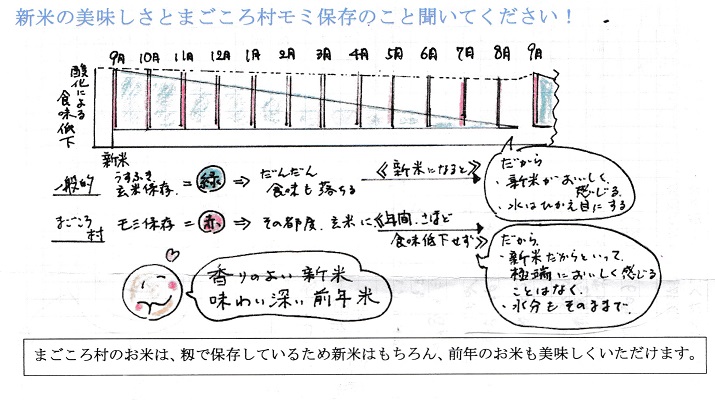 新米の美味しさとまごころ村モミ保存のこと聞いてください！
9月 10月 11月 12月 1月 2月 3月 4月 5月 6月 7月 8月 9月
酸化による食味低下
新米
一般的
うすふき玄米保存. = 緑 ⇒ だんだん食味も落ちる
《新米になると》
だから
・新米がおいしく、感じる.
・水はひかえ目にする
まごころ村
モミ保存 = 赤 ⇒ その都度.玄米に.
《年間.さほど食味低下せず》
だから.
・新米だからといって.
極端においしく感じる
ことはなく.
・水分もそのままで.
香りのよい新米
味わい深い前年米
まごころ村のお米は、籾で保存しているため新米はもちろん、前年のお米も美味しくいただけます。